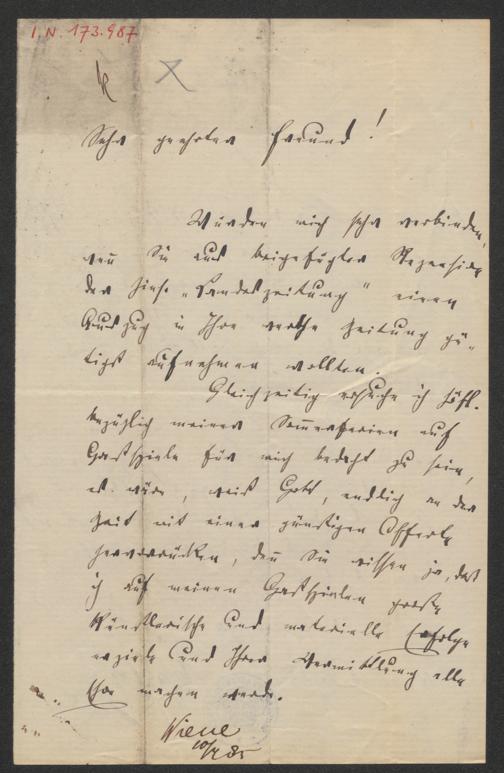 I.N. 173.987
Sehr geehrter Freund!
Würden mich sehr verbinden,
wenn Sie aus beigefügter Rezension
der hies. „Landeszeitung" einen
Auszug in Ihre werthe Zeitung gü-
tigst aufnehmen wollten.
Gleichzeitig ersuche ich höfl.
bezüglich meiner Sommerferien auf
Gastspiele für mich bedacht zu sein,
es wäre, weiß Gott, endlich an der
Zeit mit einer günstigen Offerte
hervorrücken, denn Sie wissen ja, daß
ich auf meinen Gastspielen große
künstlerische und materielle Erfolge
erziele und Ihrer Vermittlung alle
Ehre machen werde.